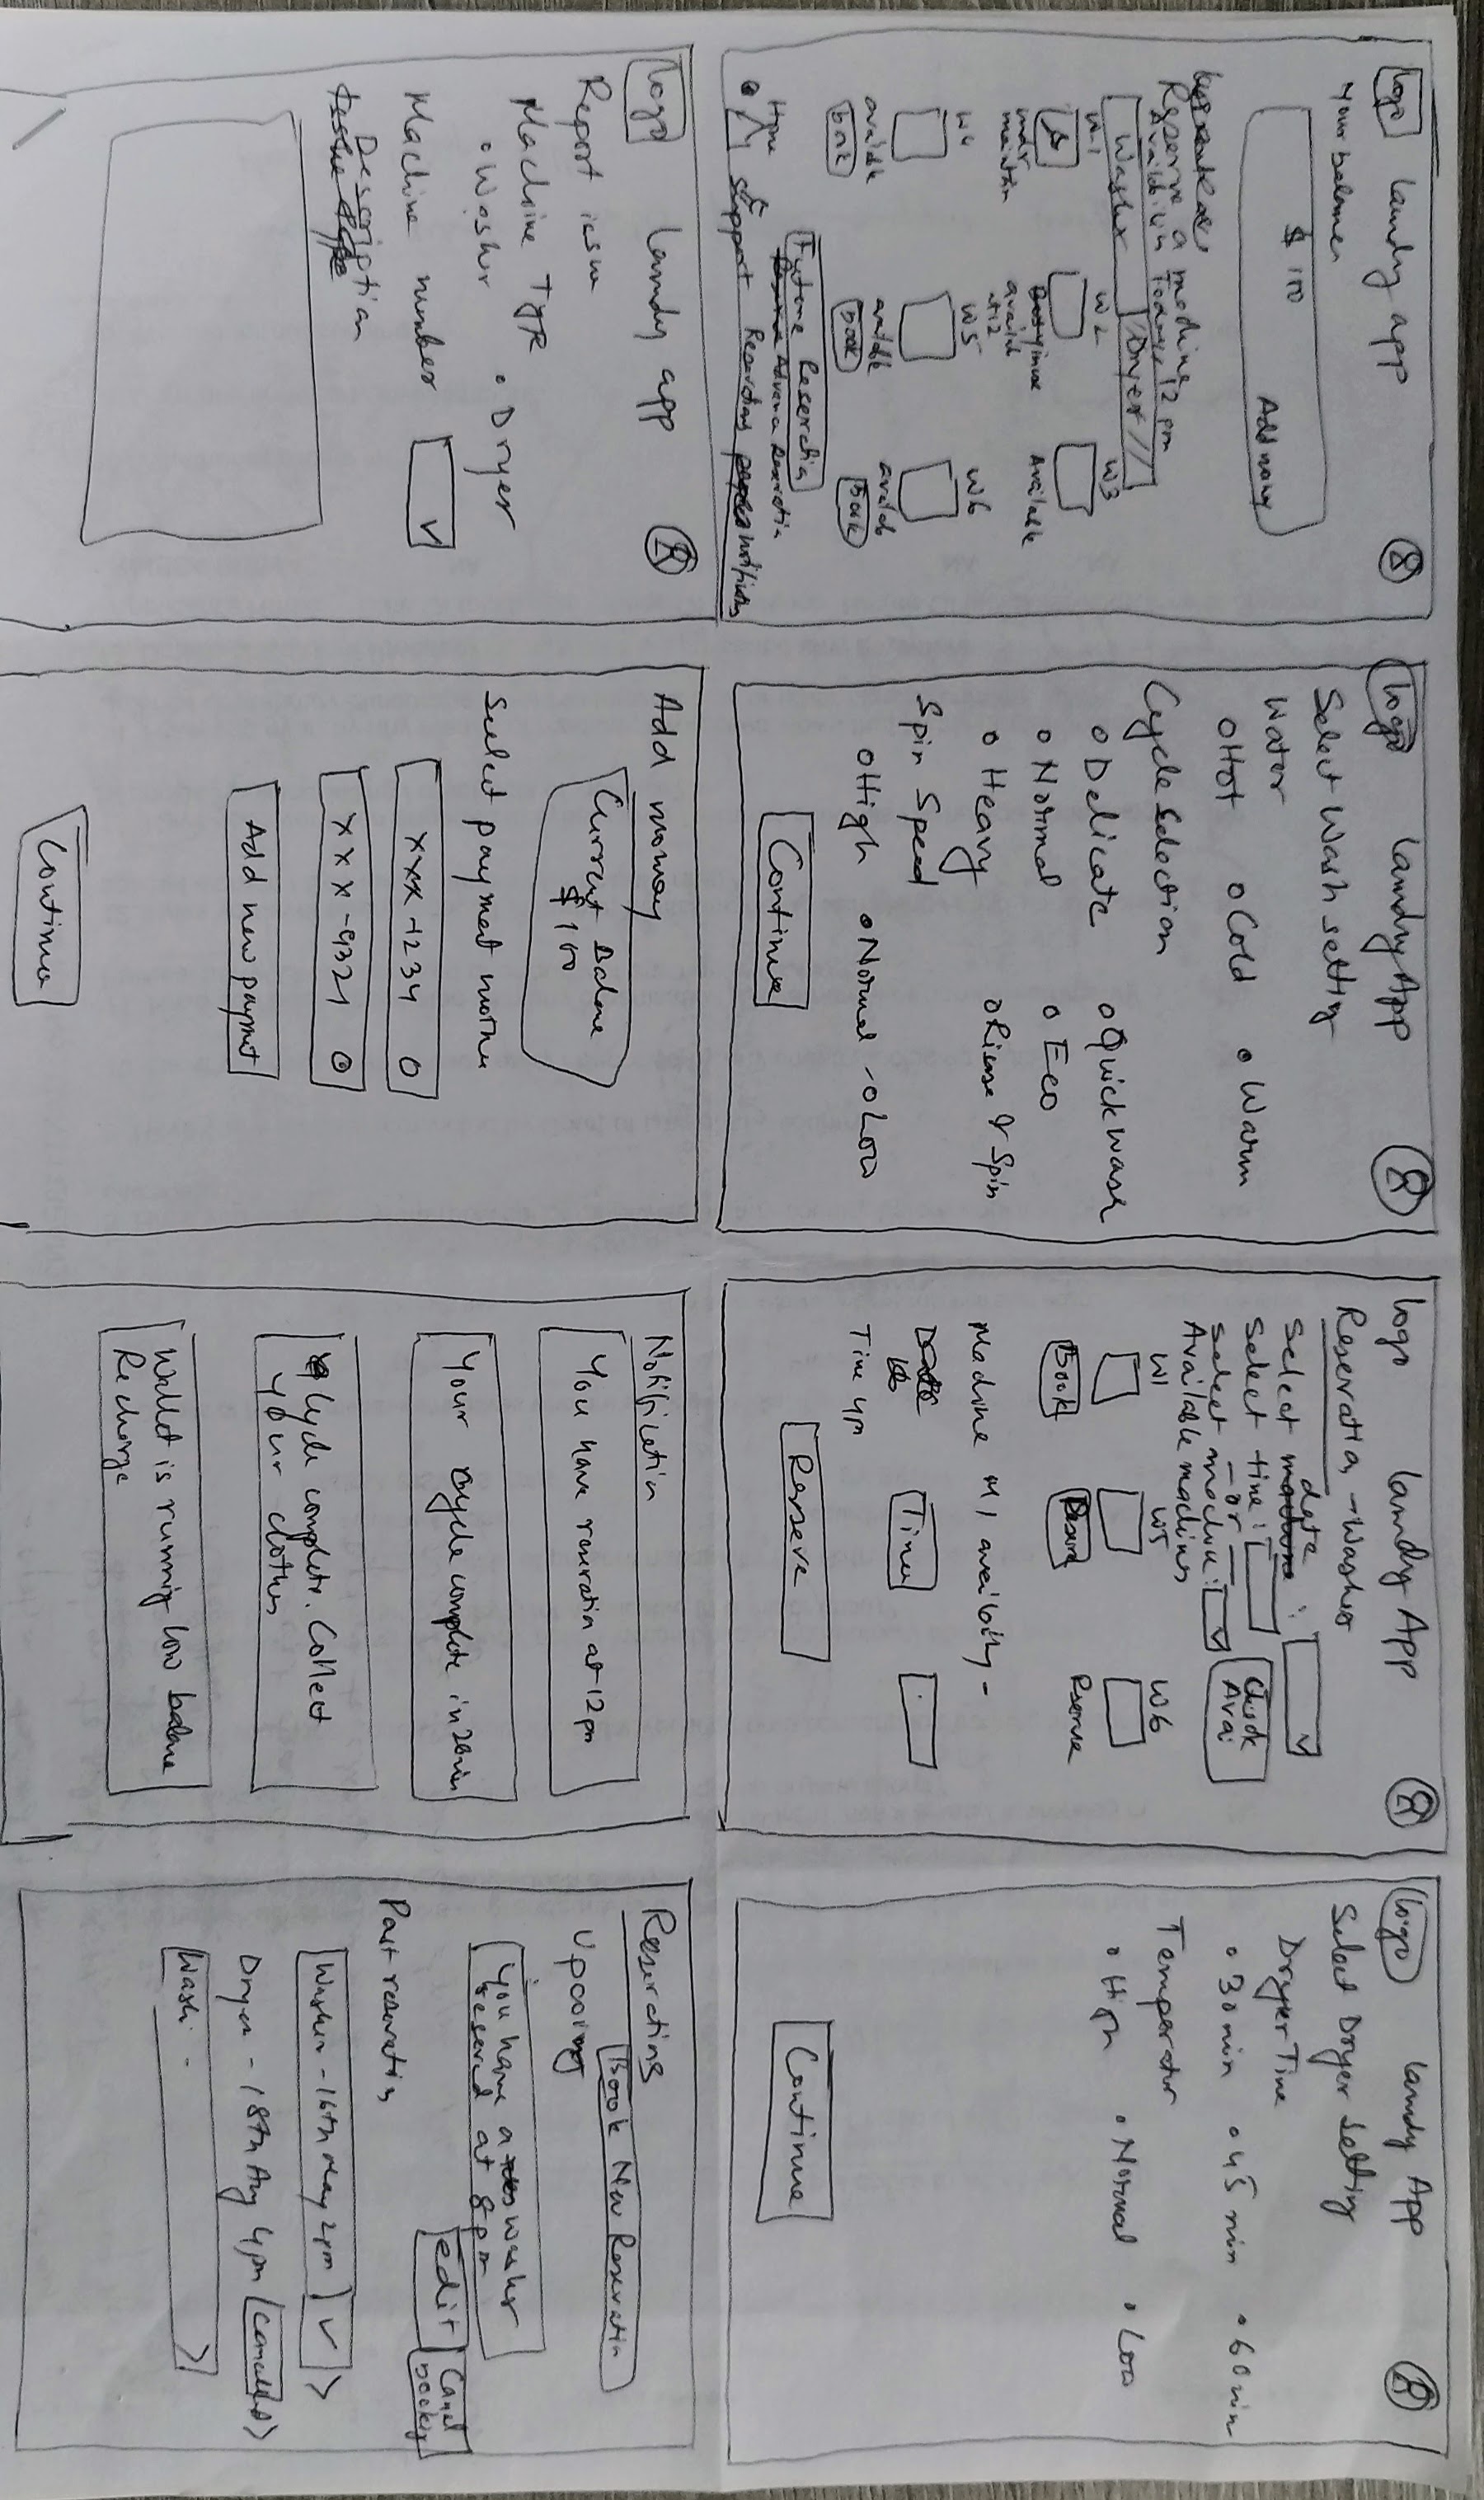 logo laundy app
your balance
$ 100 Add money
Reserve a machine
Today 12 pm
Washer / Dryer
W1 W2 W3
under maintain availab at 12 Available
W4 W5 W6
availabe available availab
Book Book Book
Future Reservation
Home Support Reservation notification
logo laundy App
Select Wash setting
Water
Hot Cold Warm
Cycle Selection
Delicate Quick wash
Normal Eco
Heavy Rinse & Spin
Spin Speed
High Normal - Low
Continue
logo laundy App
Reservation → Washer
Select date :
Select time :
- or -
Select machine : Check Avai
Available machines
W1 W5 W6
Book Reserve
Machine M1 availbility -
Time
Time 4pm
Reserve
logo laundy App
Select Dryer setting
Dryer Time
30 min 45 min 60 min
Temperatur
High Normal Low
Continue
logo laundy app
Report issue
Machine Type
Washer Dryer
Machine number
Description
Add money
Current Balance
$ 100
Select payment
xxx - 1234
xxx - 9321
Add new payment
Continue
Notification
You have reservation at 12 pm
Your cycle complete in 20 min
Cycle complete. Collect
your clothes
Wallet is running low balance
Recharge
Reservations
Book New Reservation
Upcoming
You have a washer
reserved at 8 pm
edit Cancel booking
Past reservation
Washer - 16th May 2pm >
Dryer - 18th Aug 4pm >
Wash - >